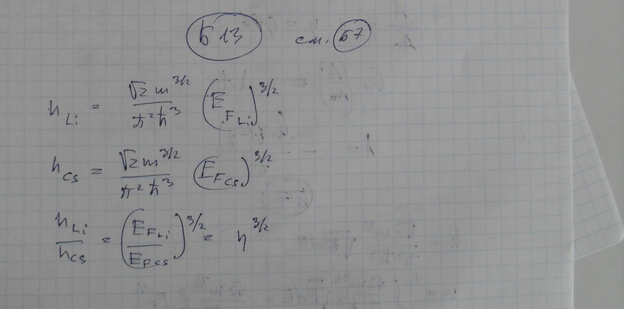 Б 13 см. Б7
n_Li = √2 m^3/2 / π²ħ³ (E_F Li)^3/2
n_Cs = √2 m^3/2 / π²ħ³ (E_F Cs)^3/2
n_Li / n_Cs = (E_F Li / E_F Cs)^3/2 = η^3/2